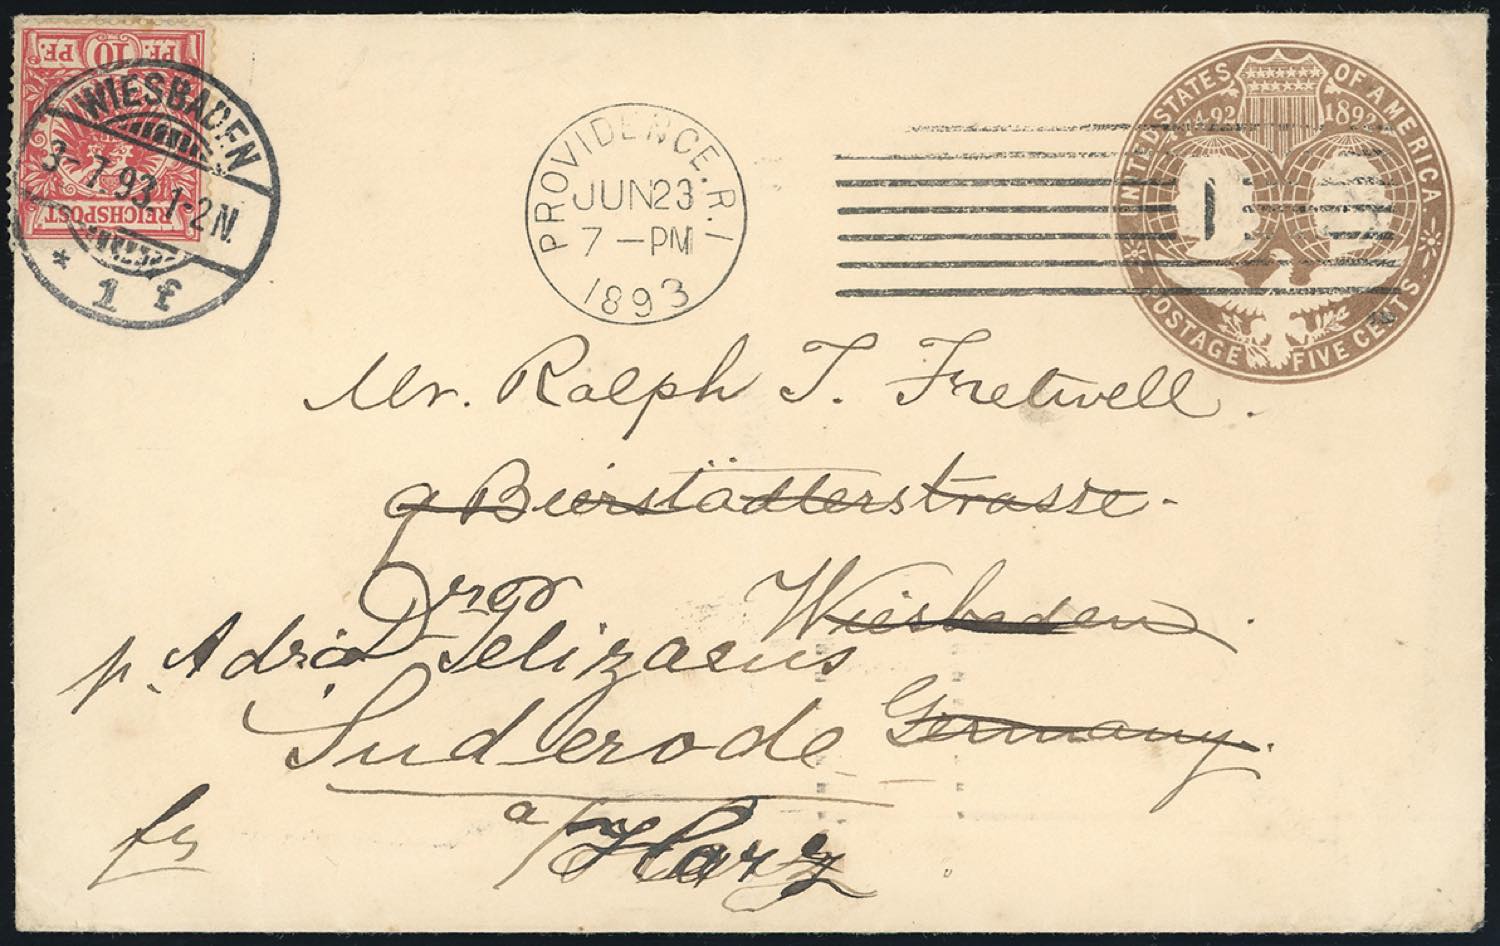 PF. 10 PF.
REICHSPOST
WIESBADEN
3-7.93.1-2N.
* 1 f
PROVIDENCE.R.I
JUN23
7-PM
1893
UNITED STATES OF AMERICA.
1492 1892
POSTAGE FIVE CENTS
Mr. Ralph T. Fretwell.
9 Bierstädterstrasse-
Wiesbaden.
p. Adr.
Suderode Germany.
a/Harz